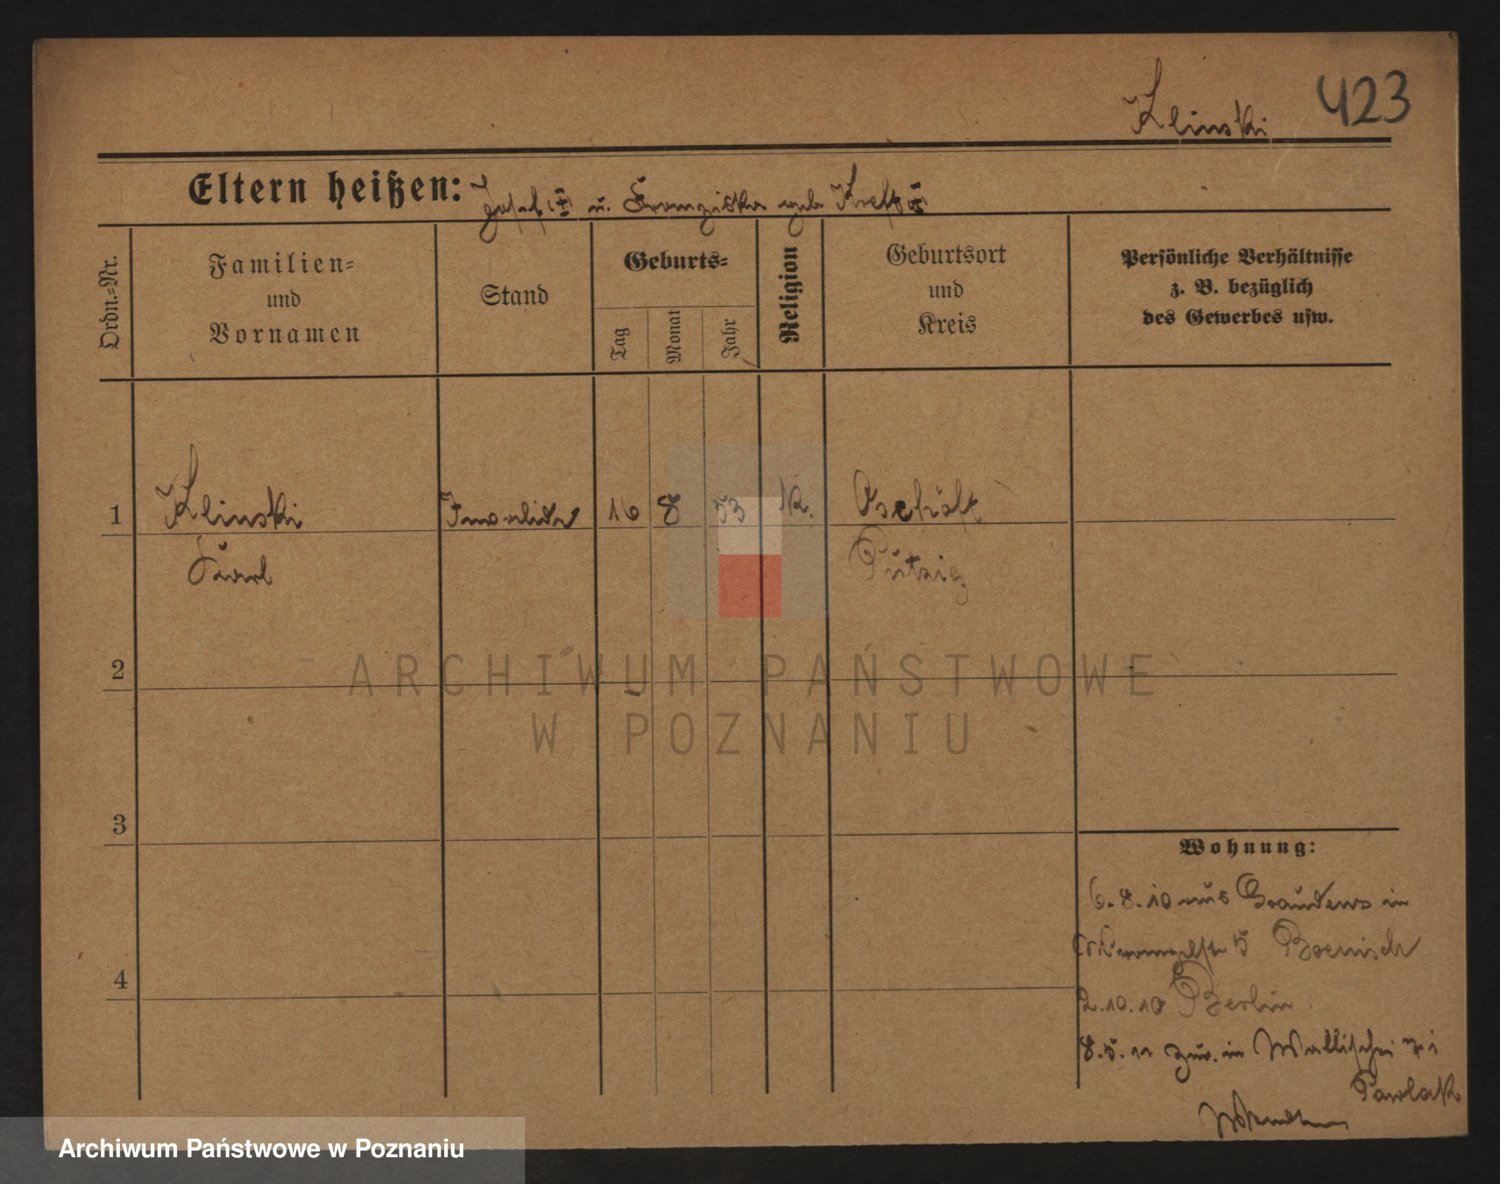 Klinski 423
Eltern heißen: Josef (†) u. Franziska geb
Ordn.-Nr.
Familien=
und
Vornamen
Stand
Geburts=
Tag
Monat
Jahr
Religion
Geburtsort
und
Kreis
Persönliche Verhältnisse
z. B. bezüglich
des Gewerbes usw.
1 Klinski Invalide 16 8 53 k.
Karl Putzig
2
3
4
Wohnung:
6.8.10 aus Graudenz in
5 Boenisch
2.10.10 Berlin
8.5.11 zur. in Wallischei
Pawlak
ARCHIWUM PAŃSTWOWE
W POZNANIU
Archiwum Państwowe w Poznaniu